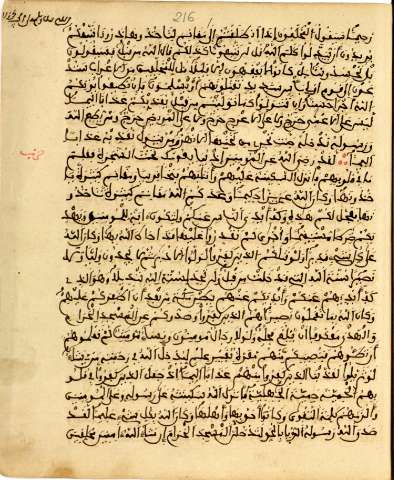 216
رحيما سيقول المخلفون إذا انطلقتم إلى مغانم لتأخذوها ذرونا نتبعكم
يريدون أن يبدلوا كلم الله قل لن تتبعونا كذلكم قال الله من قبل فسيقولون
بل تحسدوننا بل كانوا لا يفقهون إلا قليلا قل للمخلفين من الأعراب ستدعو
ن إلى قوم أولي بأس شديد تقتلونهم أو يسلمون فإن تطيعوا يؤتكم
الله أجرا حسنا وإن تتولوا كما توليتم من قبل يعذبكم عذابا أليما
ليس على الأعمى حرج ولا على الأعرج حرج ولا على المريض حرج ومن يطع الله
ورسوله ندخله جنت تجري من تحتها الأنهر ومن يتول نعذبه عذابا
حزب
أليما لقد رضي الله عن المومنين إذ يبايعونك تحت الشجرة فعلم
ما في قلوبهم فأنزل السكينة عليهم وأثبهم فتحا قريبا ومغانم كثيرة يا
خذونها وكان الله عزيزا حكيما وعدكم الله مغانم كثيرة تأخذو
نها فعجل لكم هذه وكف أيدي الناس عنكم ولتكون آية للمومنين ويهد
يكم صراطا مستقيما وأخرى لم تقدروا عليها قد أحاط الله بها وكان الله
على كل شيء قديرا ولو قتلكم الذين كفروا لولوا الأدبر ثم لا يجدون وليا ولا
نصيرا سنة الله التي قد خلت من قبل ولن تجد لسنة الله تبديلا وهو الذي
كف أيديهم عنكم وأيديكم عنهم ببطن مكة من بعد أن أظفركم عليهم
وكان الله بما تعملون بصيرا هم الذين كفروا وصدوكم عن المسجد الحرام
والهدي معكوفا أن يبلغ محله ولولا رجال مومنون ونساء مومنت لم تعلموهم
أن تطئوهم فتصيبكم منهم معرة بغير علم ليدخل الله في رحمته من يشاء
لو تزيلوا لعذبنا الذين كفروا منهم عذابا أليما إذ جعل الذين كفروا في قلو
بهم الحمية حمية الجهلية فأنزل الله سكينته على رسوله وعلى المومنين
وألزمهم كلمة التقوى وكانوا أحق بها وأهلها وكان الله بكل شيء عليما لقد
صدق الله رسوله الرءيا بالحق لتدخلن المسجد الحرام إن شاء الله ءامنين محلقين